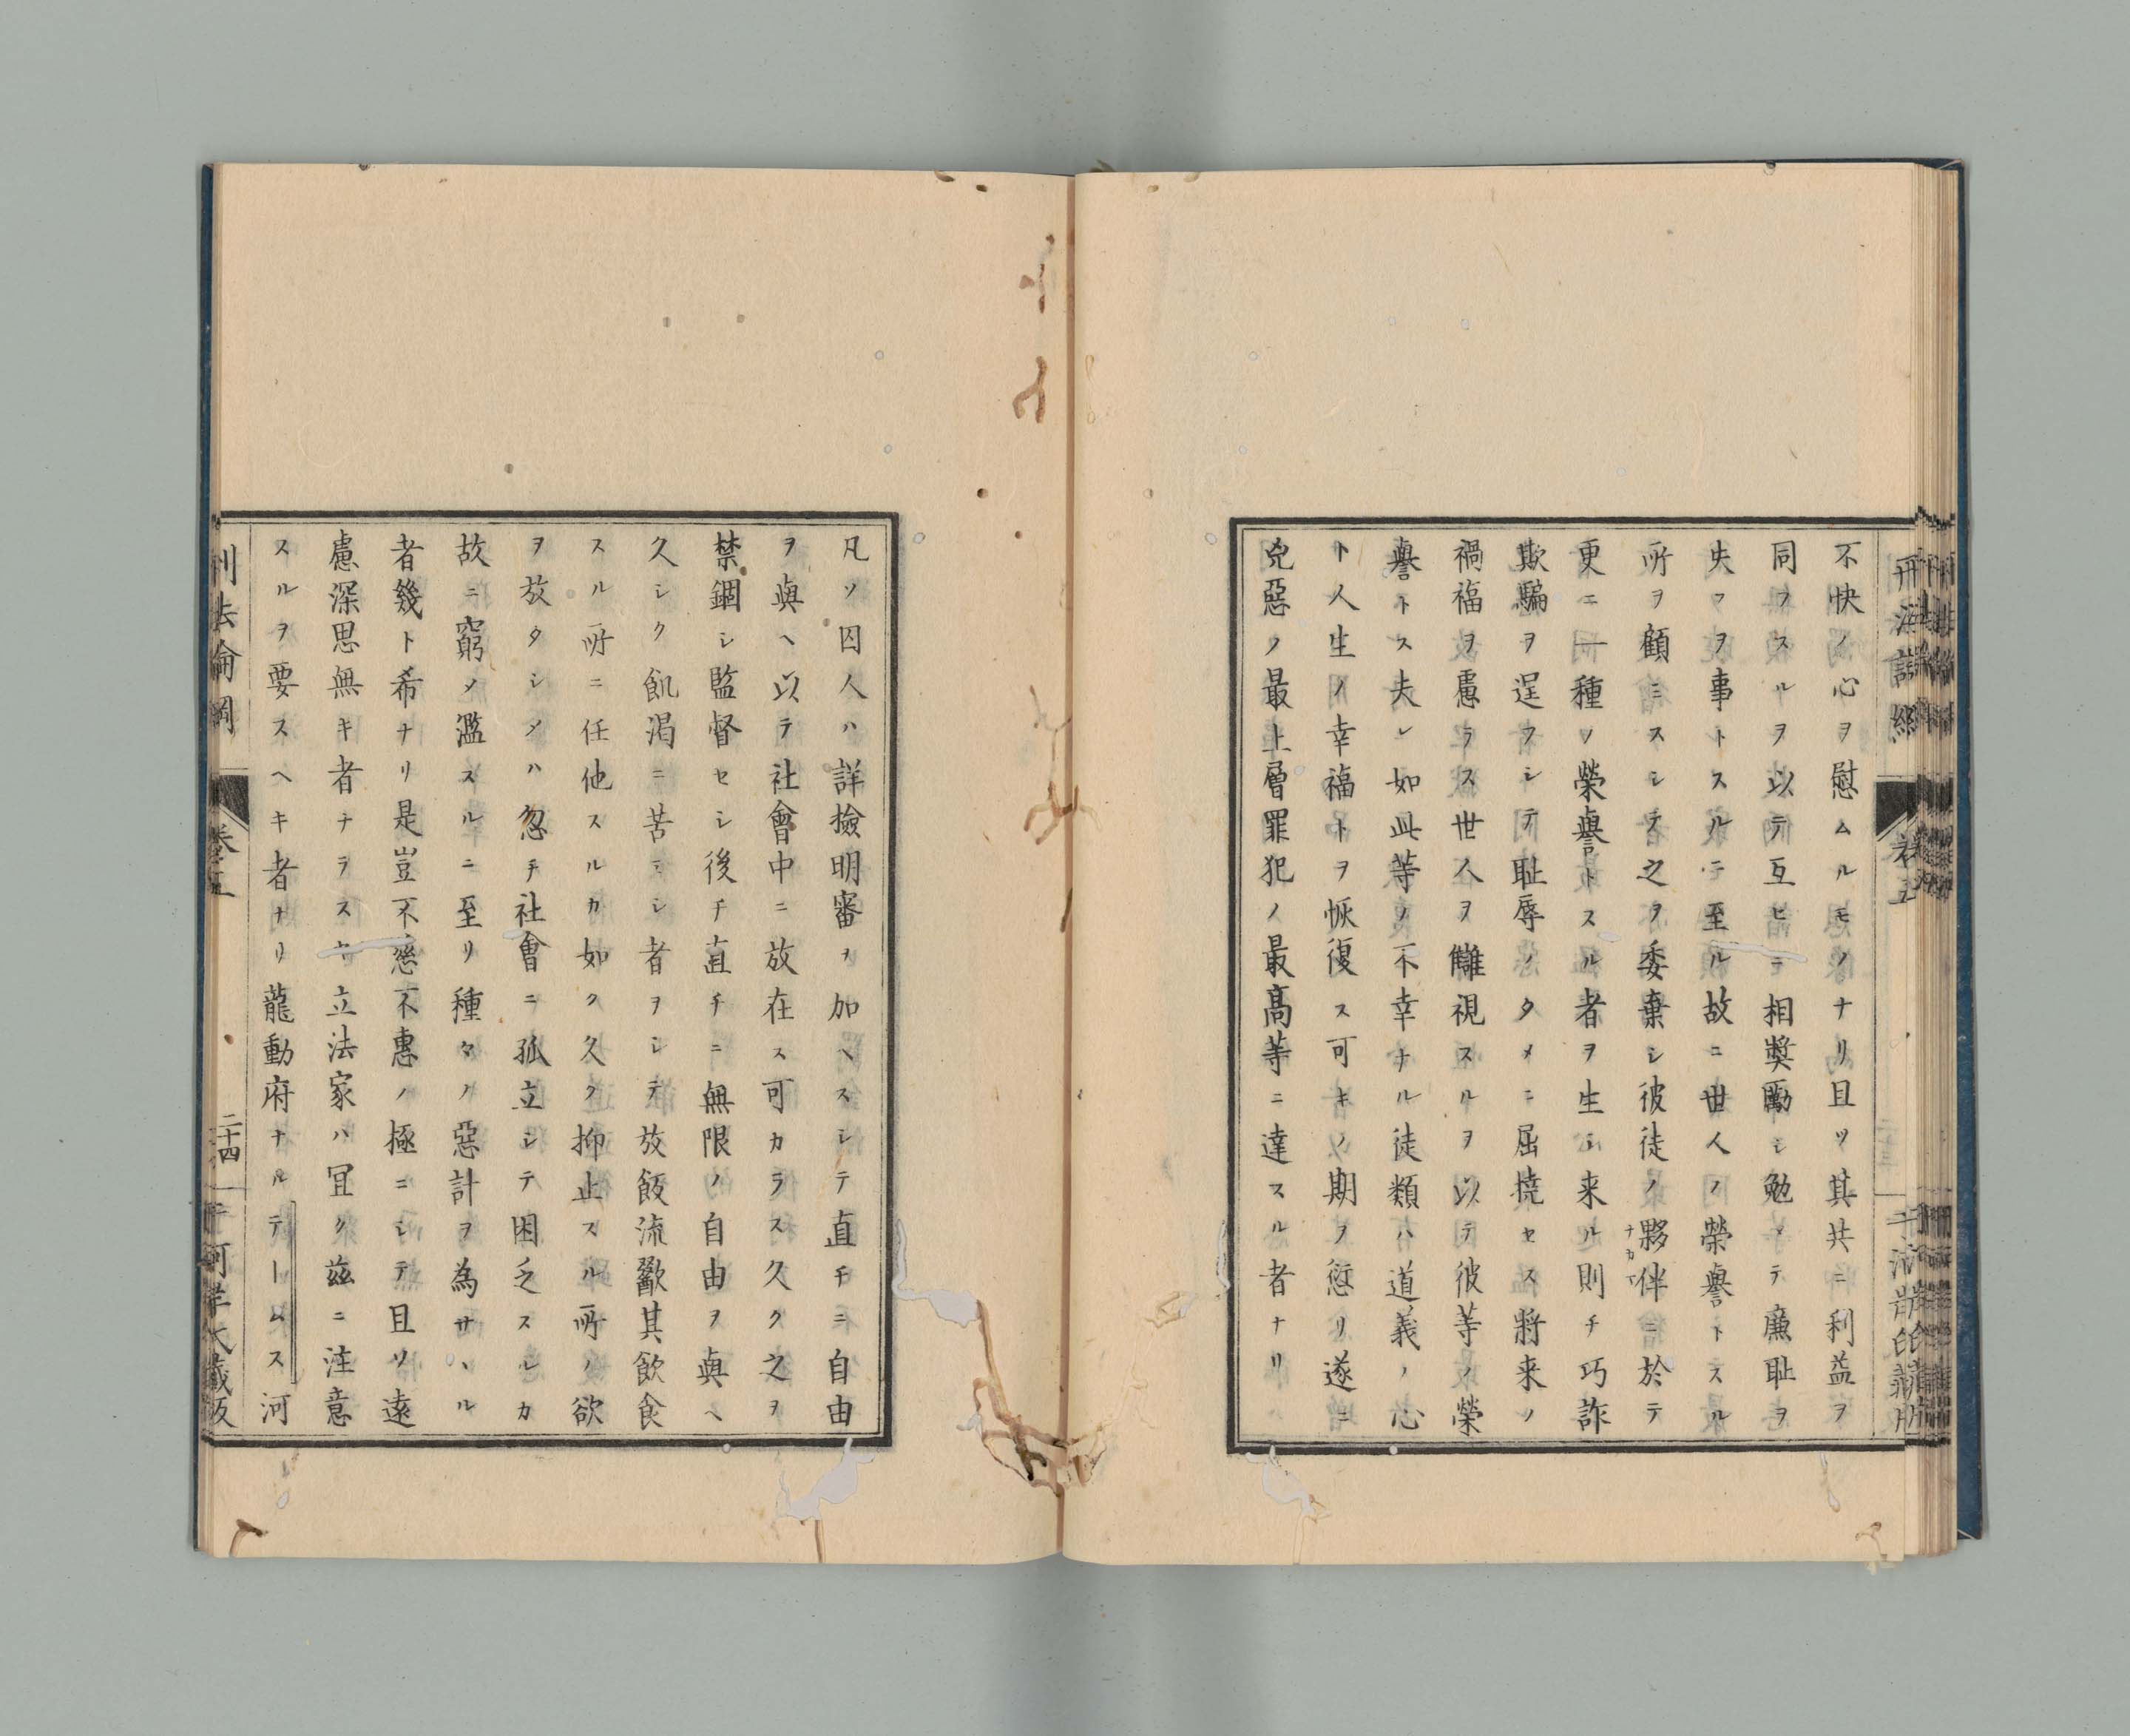 不快ノ心ヲ慰ムルモノナリ且ツ其共ニ利益ヲ
同フスルヲ以テ互ヒニ相奬勵シ勉メテ廉耻ヲ
失フヲ事トスルニ至ル故ニ世人ノ榮譽トスル
所ヲ顧ミスシテ之ヲ委棄シ彼徒ノ夥伴ニ於テ
ナカマ
更ニ一種ノ榮譽トスル者ヲ生シ来ル則チ巧詐
欺騙ヲ逞フシテ耻辱ノタメニ屈撓セス將来ノ
禍福ヲ慮ラス世人ヲ讎視スルヲ以テ彼等ノ榮
譽トス夫レ如此等ノ不幸ナル徒類ハ道義ノ心
ト人生ノ幸福トヲ恢復ス可キノ期ヲ愆リ遂ニ
兇惡ノ最上層罪犯ノ最高等ニ達スル者ナリ
凡ソ囚人ハ詳撿明審ヲ加ヘスシテ直チニ自由
ヲ與ヘ以テ社會中ニ放在ス可カラス久ク之ヲ
禁錮シ監督セシ後チ直チニ無限ノ自由ヲ與ヘ
久シク飢渇ニ苦ミシ者ヲシテ放飯流歠其飲食
スル所ニ任他スルカ如ク久ク抑止スル所ノ欲
ヲ放タシメハ忽チ社會ニ孤立シテ困乏スルカ
故ニ窮ノ濫スルニ至リ種々ノ惡計ヲ為サヽル
者幾ト希ナリ是豈不慈不惠ノ極ニシテ且ツ遠
慮深思無キ者ナラスヤ立法家ハ冝ク茲ニ注意
スルヲ要スヘキ者ナリ龍動府ナルテームス河
刑法論綱
卷五
二十四
何禮之藏版